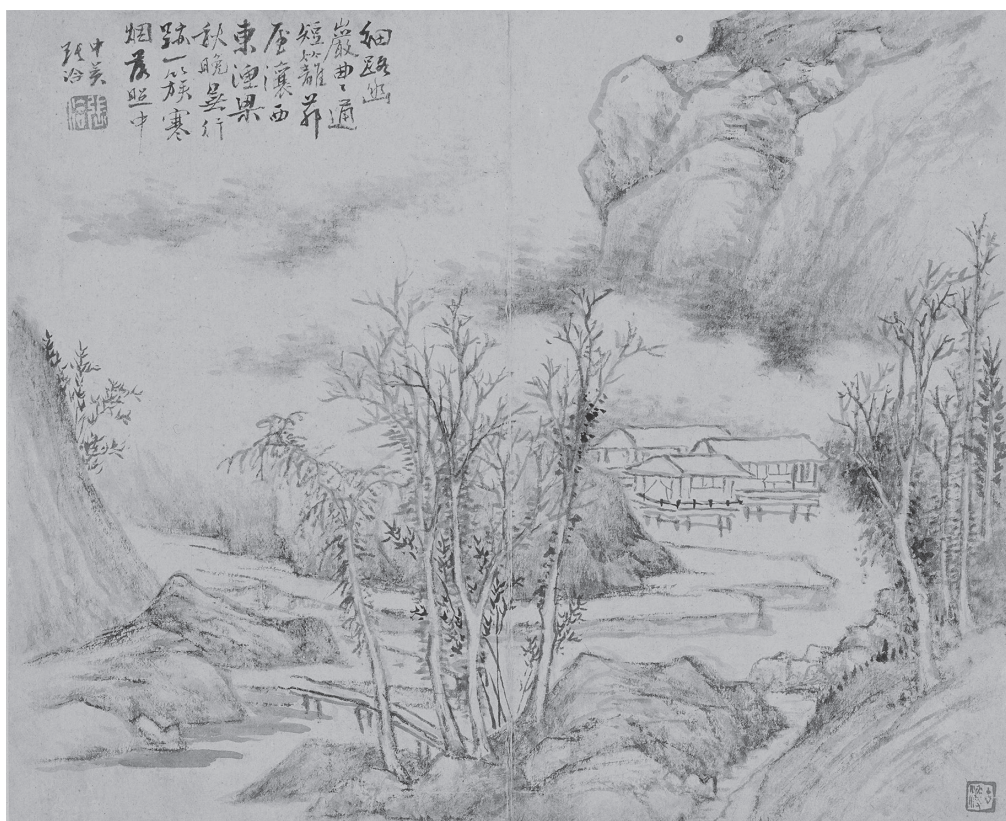 細路幽
巖曲〻通
短籬茆
屋瀼西
東漁梁
秋晚無行
跡一簇寒
烟落照中
張洽
張洽